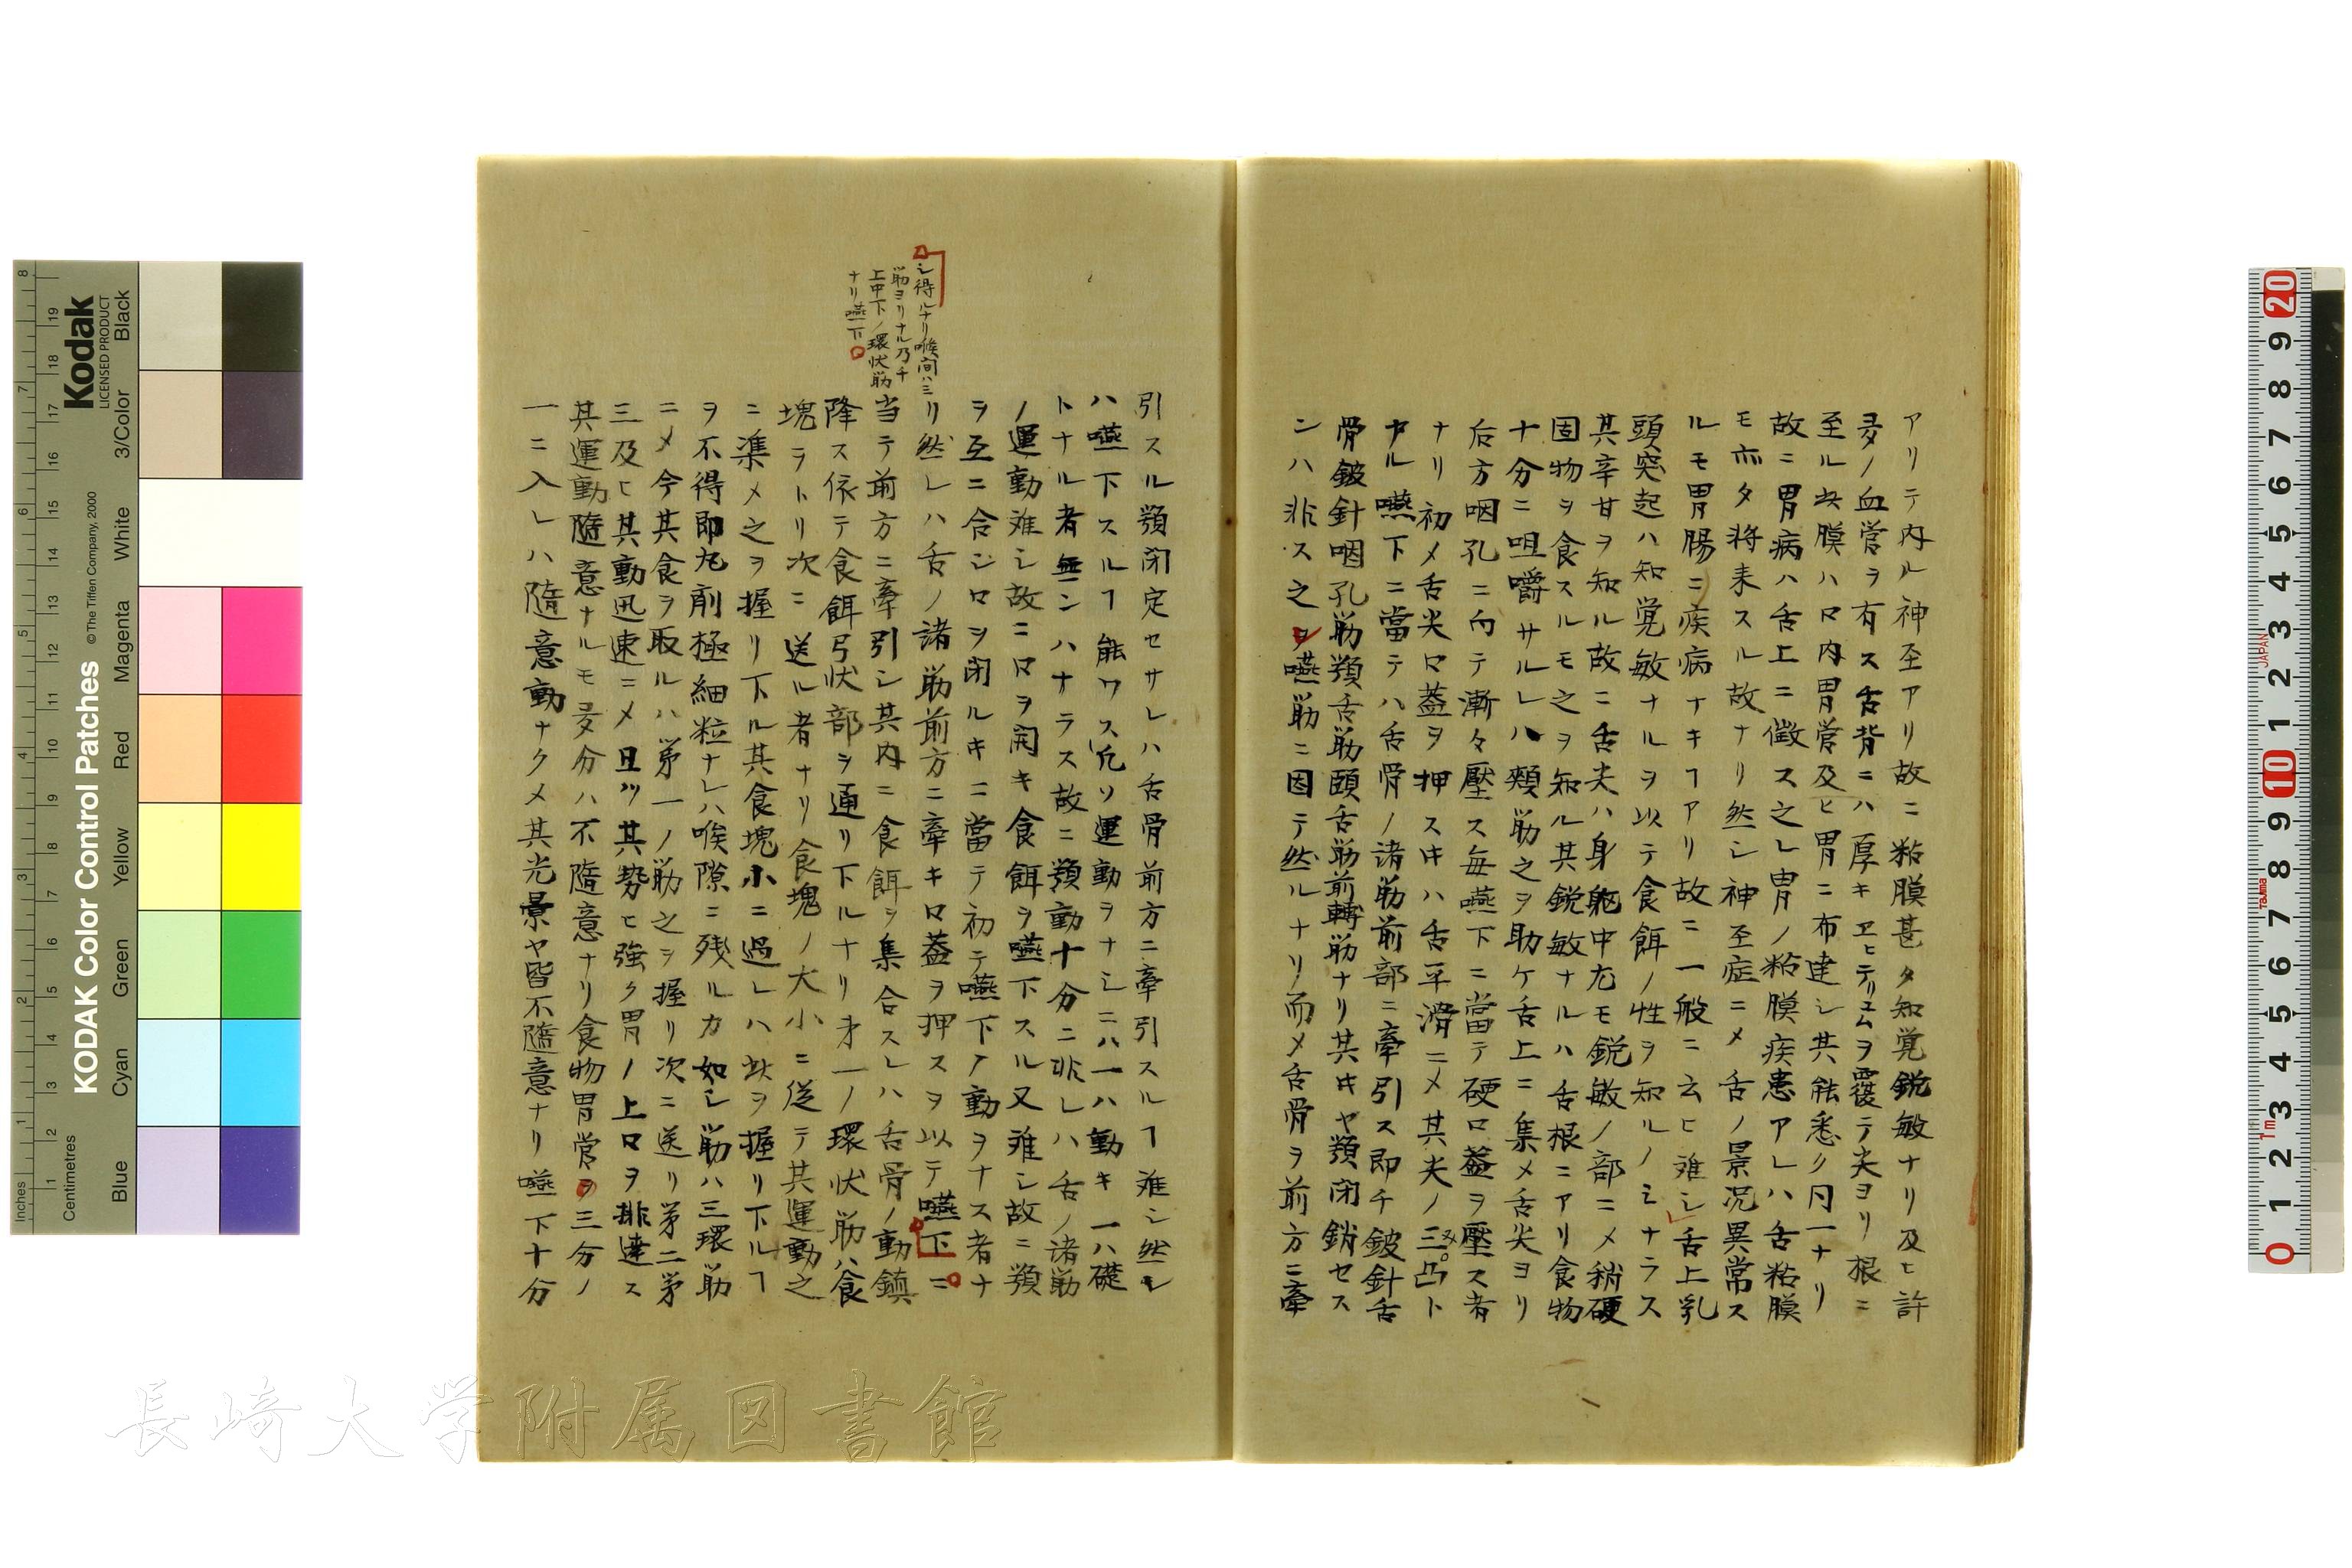 アリテ内ル神至アリ故ニ粘膜甚タ知覚鋭敏ナリ及ヒ許
多ノ血管ヲ有ス舌背ニハ厚キヱヒテリユムヲ覆テ尖ヨリ根ニ
至ル此膜ハ口内胃管及ヒ胃ニ布達シ共能悉ク同一ナリ
故ニ胃病ハ舌上ニ徴ス之レ胃ノ粘膜疾患アレハ舌粘膜
モ亦タ将来スル故ナリ然シ神至症ニメ舌ノ景況異常ス
ルモ胃腸ニ疾病ナキヿアリ故ニ一般ニ云ヒ難シ舌上乳
頭突起ハ知覚敏ナルヲ以テ食餌ノ性ヲ知ルノミナラス
其辛甘ヲ知ル故ニ舌尖ハ身躯中尤モ鋭敏ノ部ニメ稍硬
固物ヲ食スルモ之ヲ知ル其鋭敏ナルハ舌根ニアリ食物
十分ニ咀嚼サルレハ頬筋之ヲ助ケ舌上ニ集メ舌尖ヨリ
后方咽孔ニ向テ漸々壓ス毎嚥下ニ當テ硬口蓋ヲ壓ス者
ナリ初メ舌尖口蓋ヲ押スヰハ舌平滑ニメ其尖ノミ凸ト
ナル嚥下ニ當テハ舌骨ノ諸筋前部ニ牽引ス即チ鈹針舌
骨鈹針咽孔筋顎舌筋頤舌筋前轉筋ナリ其ヰヤ顎閉鎖セス
ンハ非ス之ヲ嚥筋ニ因テ然ルナリ而メ舌骨ヲ前方ニ牽
引スル顎閉定セサレハ舌骨前方ニ牽引スルヿ難シ然レ
ハ嚥下スルヿ能ワス凡ソ運動ヲナシニハ一ハ動キ一ハ礎
トナル者無ンハナラス故ニ顎動十分ニ非レハ舌ノ諸筋
ノ運動難シ故ニ口ヲ開キ食餌ヲ嚥下スル又難シ故ニ顎
ヲ互ニ合シ口ヲ閉ルキニ當テ初テ嚥下ノ動ヲナス者ナ
リ然レハ舌ノ諸筋前方ニ牽キ口蓋ヲ押スヲ以テ嚥下ニ
シ得ルナリ喉間ハ三
筋ヨリナル乃チ
上中下ノ環状筋
ナリ嚥下
当テ前方ニ牽引シ其内ニ食餌ヲ集合スレハ舌骨ノ動鎮
降ス依テ食餌弓状部ヲ通リ下ルナリ才一ノ環状筋ハ食
塊ヲトリ次ニ送ル者ナリ食塊ノ大小ニ従テ其運動之
ニ準メ之ヲ握リ下ル其食塊小ニ過レハ此ヲ握リ下ルヿ
ヲ不得即丸削極細粒ナレハ喉隙ニ残ルカ如シ筋ハ三環筋
ニメ今其食ヲ取ルハ第一ノ筋之ヲ握リ次ニ送リ第二第
三及ヒ其動迅速ニメ且ツ其勢ヒ強ク胃ノ上口ヲ排達ス
其運動隨意ナルモ多分ハ不隨意ナリ食物胃管ヲ三分ノ
一ニ入レハ隨意動ナクメ其光景ヤ皆不隨意ナリ嚥下十分
KODAK Color Control Patches
©The Tiffen Company, 2000
Kodak
LICENSED PRODUCT
Inches
Centimetres
Blue Cyan Green Yellow Red Magenta White 3/Color Black
JAPAN
Tajima
1m
長崎大学附属図書館